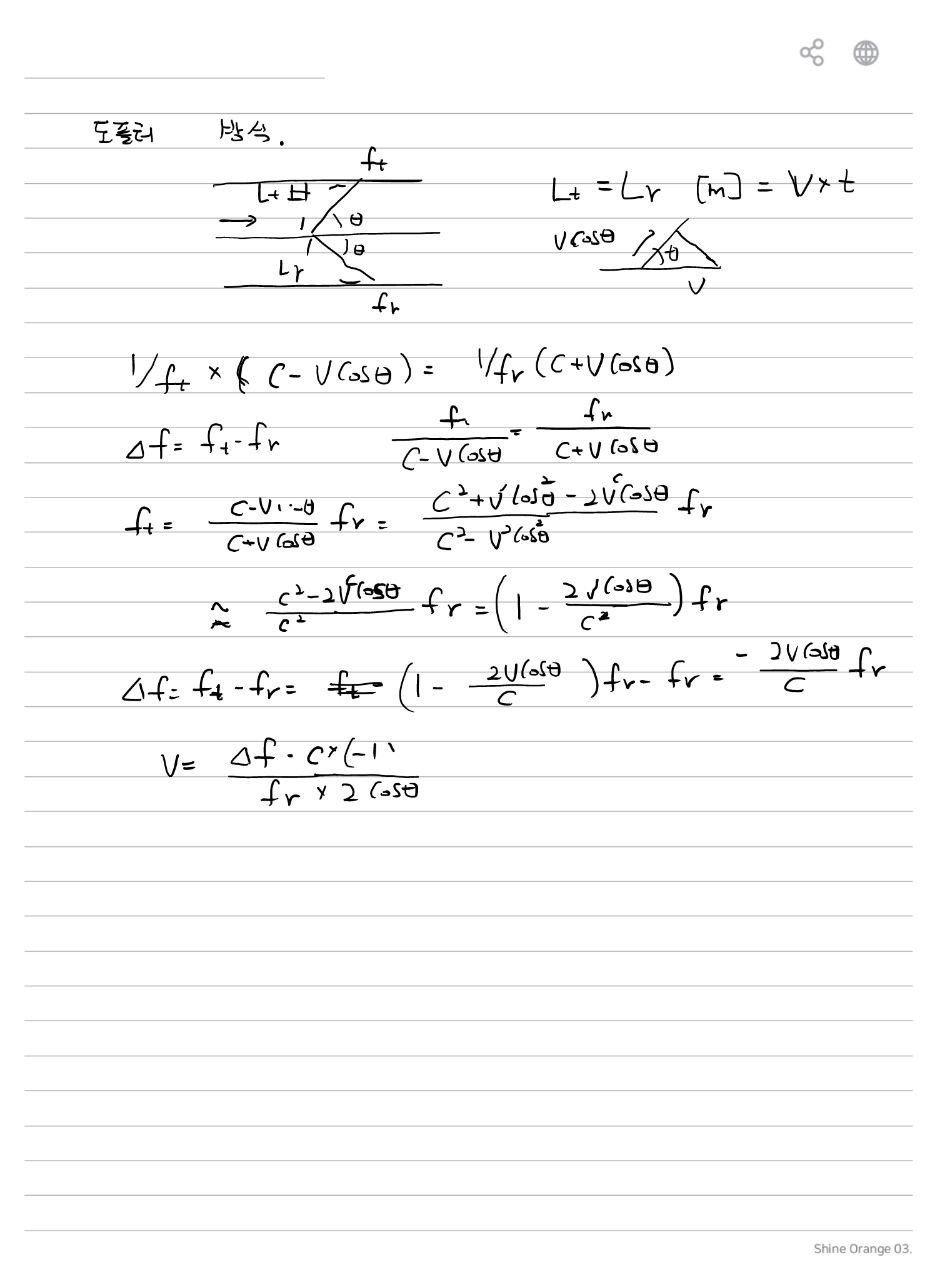 도플러 방식.
ft
Lt θ
Lr θ
fr
Lt = Lr [m] = V × t
Vcosθ θ
V
1/ft × ( C - Vcosθ ) = 1/fr (C+Vcosθ)
Δf = ft - fr fr/(C-Vcosθ) = fr/(C+Vcosθ)
ft = (C-V...θ)/(C+Vcosθ) fr = (C²+V²cos²θ - 2VCcosθ)/(C² - V²cos²θ) fr
≈ (C²-2VCcosθ)/C² fr = (1 - 2Vcosθ/C²) fr
Δf = ft - fr = (1 - 2Vcosθ/C) fr - fr = - 2Vcosθ/C fr
V = (Δf · C×(-1))/(fr × 2cosθ)
Shine Orange 03.